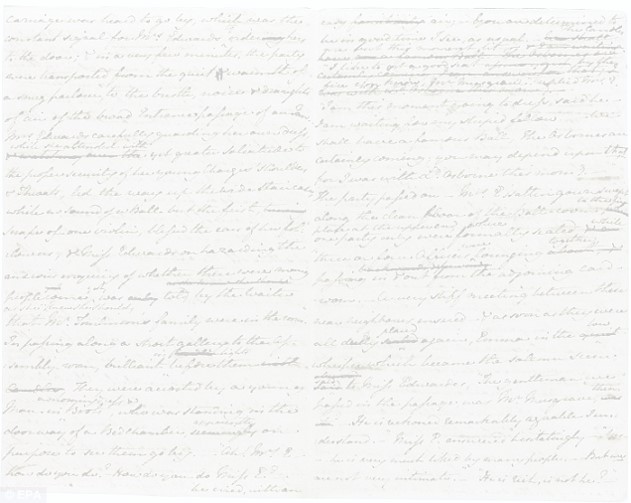 carriage was heard to go by, which near the
constant signal for Mrs Edwards ordering hers
to the door; & in a very few minutes, the party
were transported from the quiet & warmth of
a snug parlour, to the bustle, noise & draughts
of air of the broad Entrance passage of an Inn.
Mrs Edwards carefully guarding her own Dress
while she attended with
yet greater Solicitude to
the proper security of her young Charges Shoulders
& Throats, led the way up the wide Staircase,
while no sound of a Ball but the first
scrape of one violin, blessed the ears of her fol-
lowers, & Miss Edwards on hazarding the
anxious enquiry of whether there were many
people come yet was told by the Waiter
as she knew she should,
that Mr Tomlinson's family were in the room.
In passing along a short gallery to the As-
sembly-room, brilliant in lights before them
They were accosted by a young
in a morning dress &
Man in Boots, who was standing in the
doorway of a Bedchamber, apparently on
purpose to see them go by. Ah! Mrs E
how do you do? How do you do Miss E.?
he cried, with an
easy air; You are determined to
be in good time I see, as usual.
The Candles are but this moment lit
I like to get a good seat by the
fire you know, Mr Musgrave. replied Mrs E.
I am this moment going to dress, said he
I am waiting for my stupid fellow. We
shall have a famous Ball. The Osbornes are
certainly coming; you may depend upon that
for I was with Ld Osborne this morng
The party passed on Mrs E's sattin gown swept
along the clean floor of the Ballroom to the fire
place at the upper end, where
one party only were formally seated, while
three or four Officers were lounging together,
passing in & out from the adjoining card
room. A very stiff meeting between these
near neighbours ensued & as soon as they were
all duely placed again, Emma in the low
whisper which became the solemn scene
said to Miss Edwardes, The gentleman we
passed in the passage, was Mr Musgrave, then
He is reckoned remarkably agreable I un-
derstand. Miss E. answered hesitatingly Yes
he is very much liked by many people. But we
are not very intimate. He is rich, is not he?
© EPA